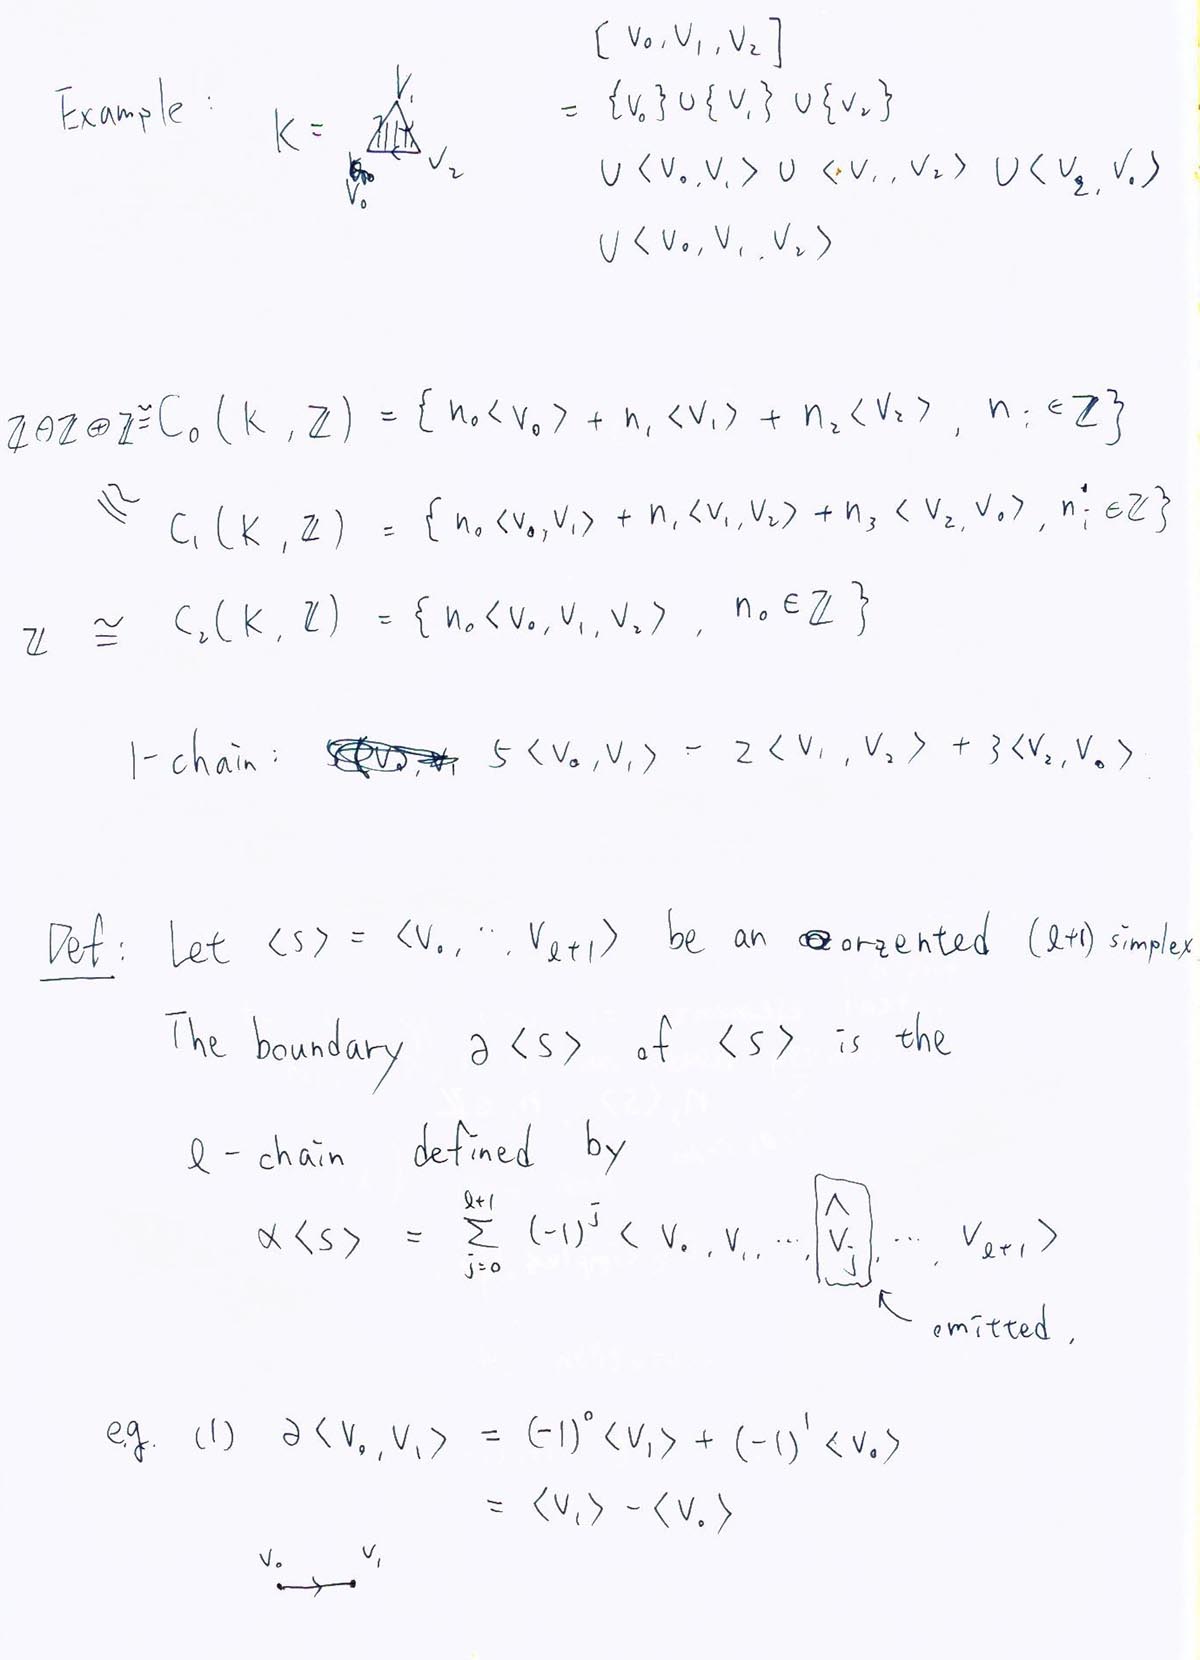 [V₀, V₁, V₂]
Example : K = V₁ V₀ V₂ = {V₀} ∪ {V₁} ∪ {V₂}
∪ <V₀, V₁> ∪ <V₁, V₂> ∪ <V₂, V₀>
∪ <V₀, V₁, V₂>
ℤ⊕ℤ⊕ℤ ≅ C₀(K, ℤ) = {n₀<V₀> + n₁<V₁> + n₂<V₂>, nᵢ ∈ ℤ}
≅ C₁(K, ℤ) = {n₀<V₀, V₁> + n₁<V₁, V₂> + n₃<V₂, V₀>, nᵢ ∈ ℤ}
ℤ ≅ C₂(K, ℤ) = {n₀<V₀, V₁, V₂>, n₀ ∈ ℤ}
1-chain : 5<V₀, V₁> - 2<V₁, V₂> + 3<V₂, V₀>
Def : Let <s> = <V₀, .., V_{ℓ+1}> be an oriented (ℓ+1) simplex
The boundary ∂<s> of <s> is the
ℓ-chain defined by
∝<s> = Σ_{j=0}^{ℓ+1} (-1)^j <V₀, V₁, ..., V̂_j, ..., V_{ℓ+1}>
omitted.
e.g. (1) ∂<V₀, V₁> = (-1)⁰<V₁> + (-1)¹<V₀>
= <V₁> - <V₀>
V₀ V₁